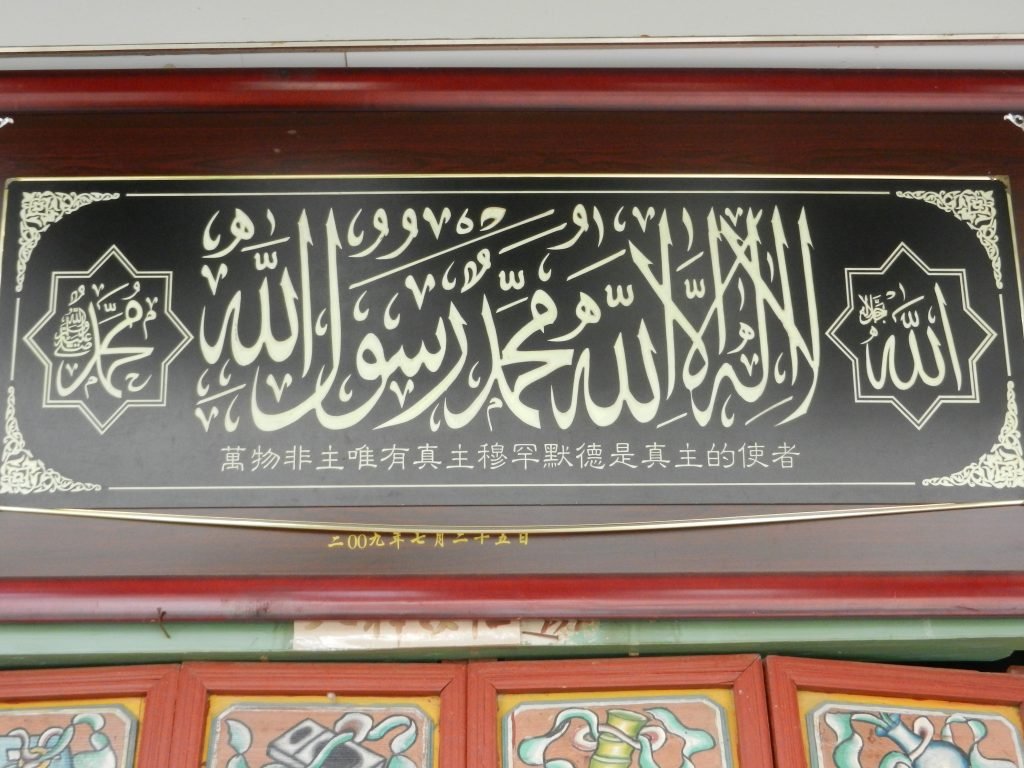 الله جل جلاله
لا إله إلا الله محمد رسول الله
محمد صلى الله عليه وسلم
萬物非主唯有真主穆罕默德是真主的使者
二00九年七月二十五日